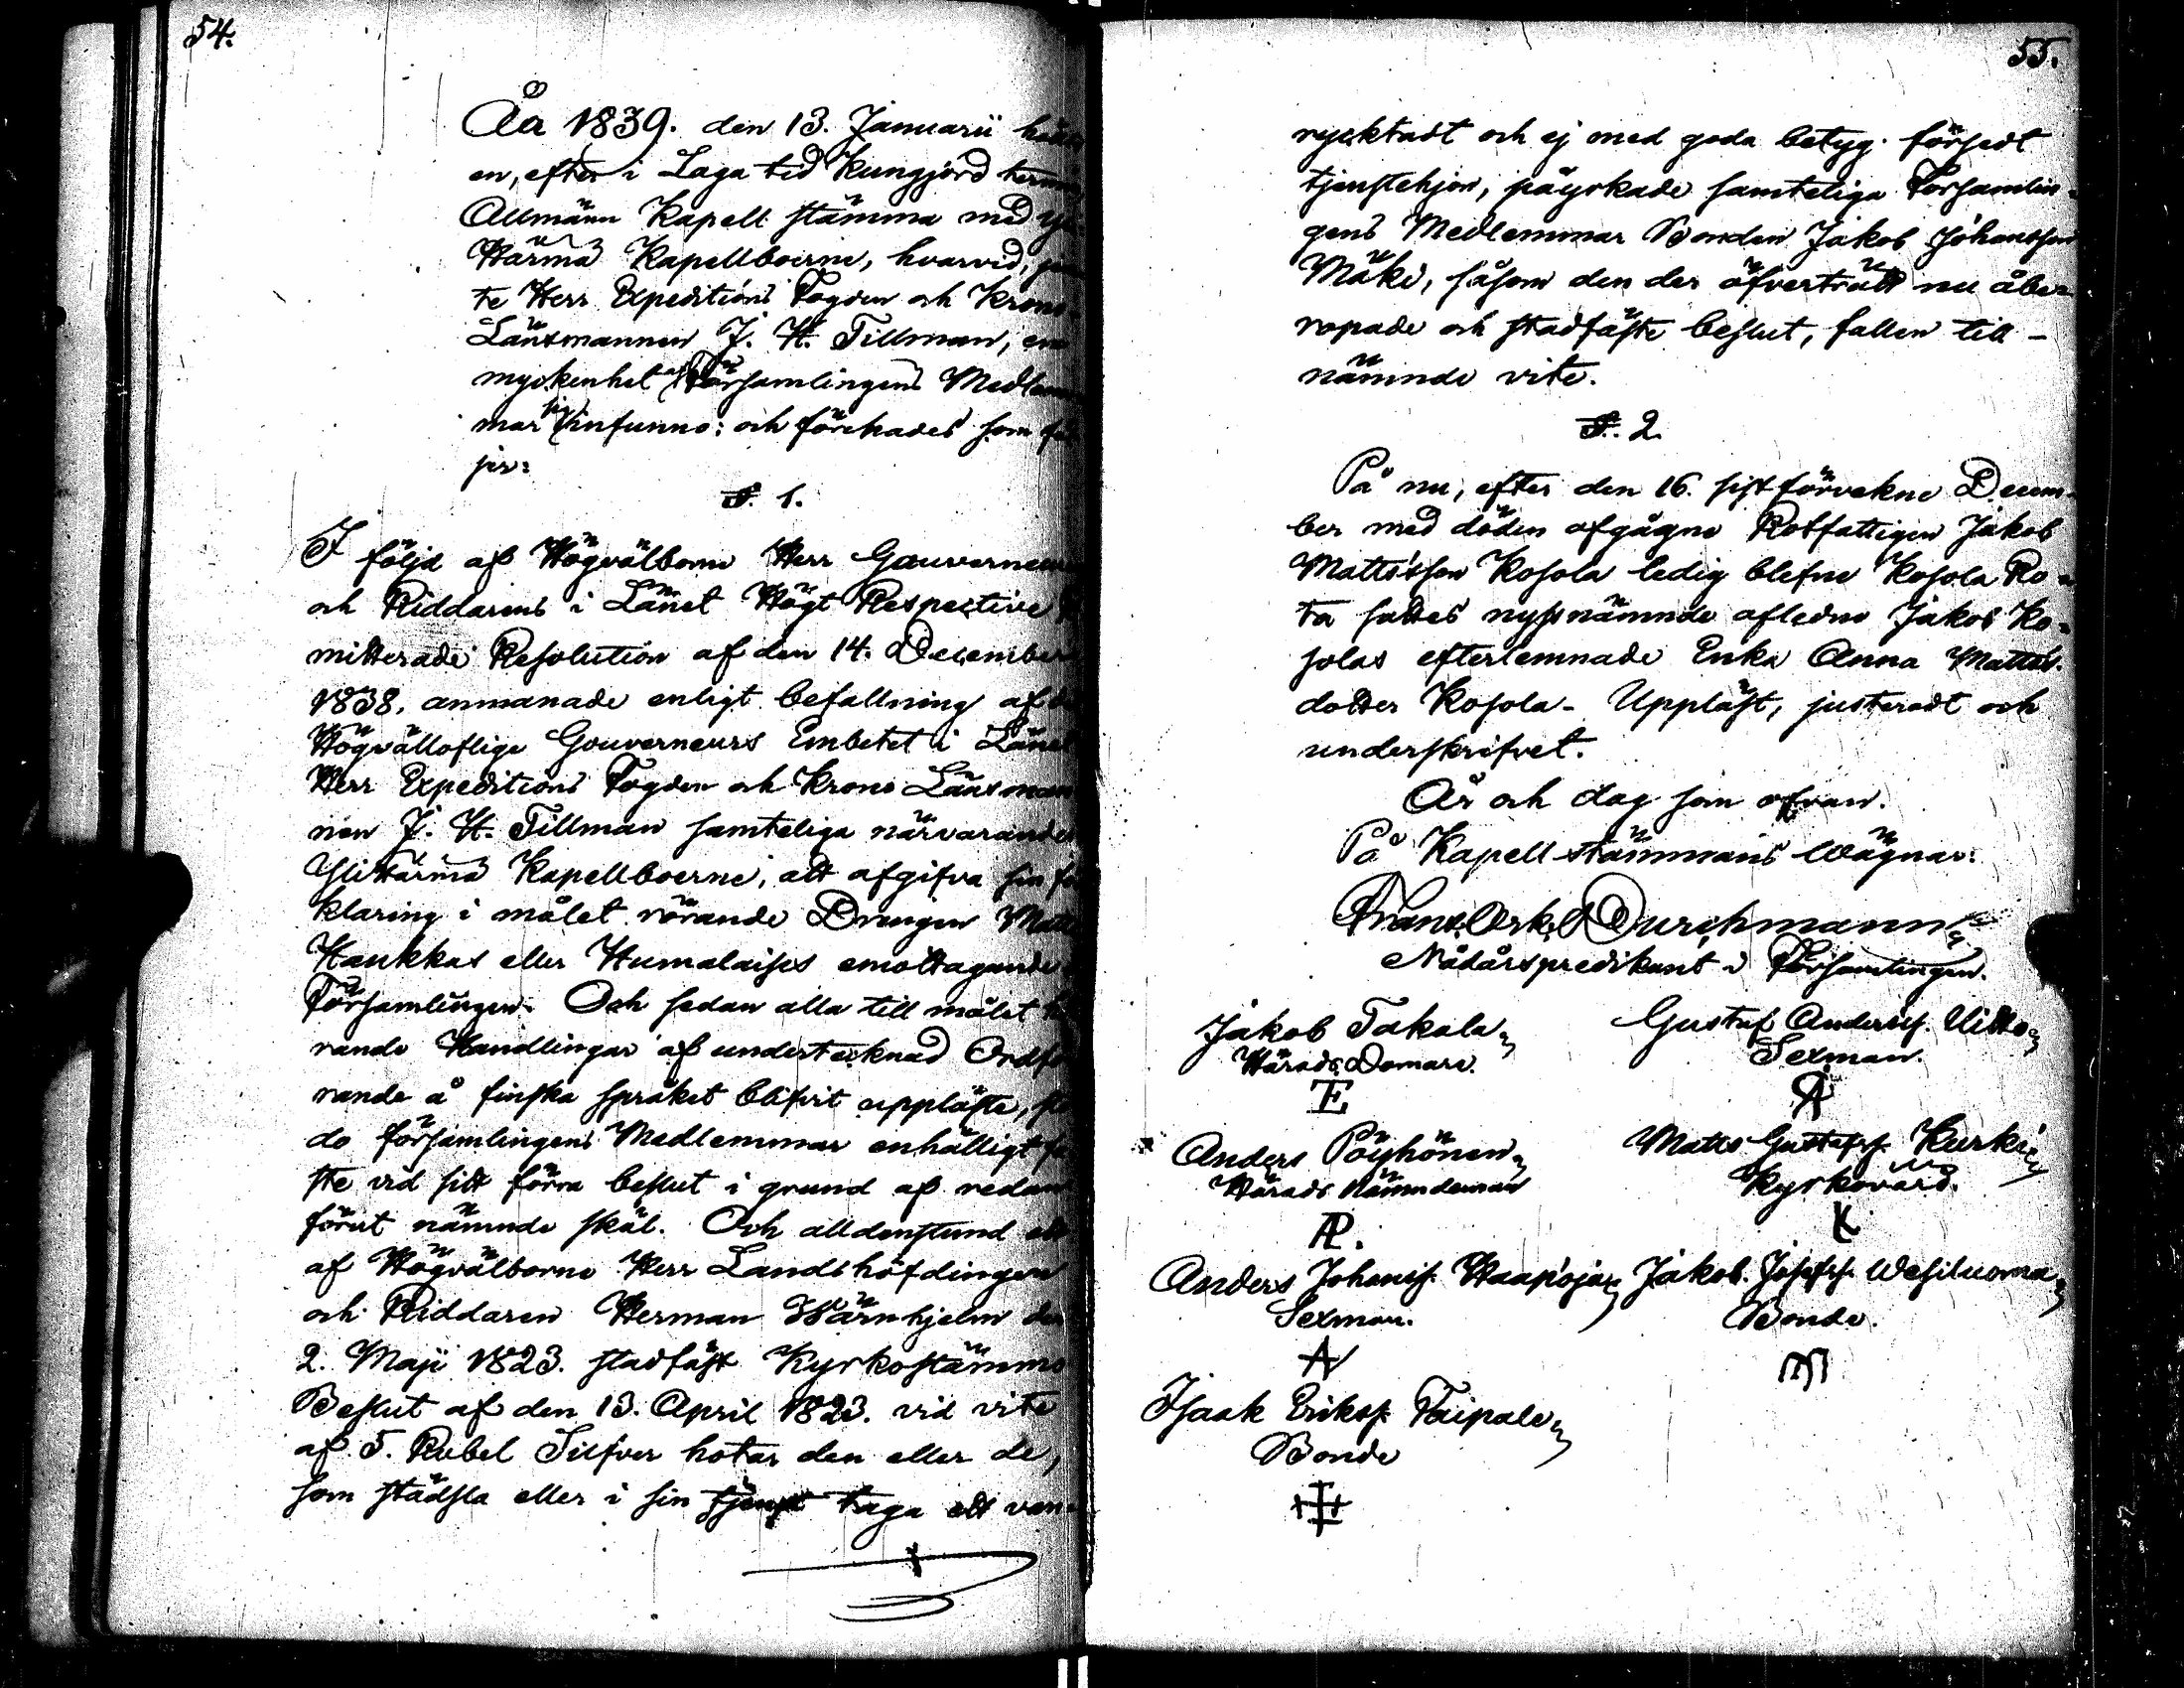 54.
År 1839. den 13. Januarii
en, efter i Laga tid Kungjord
Allmänn Kapell stämma med
Härmä Kapellboerne, hvarvid,
te Herr Expeditions Fogden och Krono
Länsmannen J. H. Tillman, en
myckenhet af Församlingens Medlem
mar sig infunno: och förehades som föl
jer:
§. 1.
I följd af Högvälborne Herr Gouverneur
och Riddarens i Länet Högt Respective
mitterade Resolution af den 14. December
1838. anmanade enligt befallning af
Högvälloflige Gouverneurs Embetet i Länet
Herr Expeditions Fogden och Krono Länsman
nen J. H. Tillman samteliga närvarande
Ylihärmä Kapellboerne, att afgifva sin för
klaring i målet rörande Drengen Matts
Haukkas eller Humalaises emottagande i
Församlingen. Och sedan alla till målet hö
rande Handlingar af undertecknad Ordfö
rande å finska språket blifvit uppläste,
do församlingens Medlemmar enhälligt fa
ste vid sitt förra beslut i grund af redan
förut nämnde skäl. Och alldenstund ett
af Högvälborne Herr Landshöfdingen
och Riddaren Herman Wärnhjelm den
2. Maji 1823. stadfäst Kyrkostämmo
Beslut af den 13. April 1823. vid vite
af 5. Rubel Silfver hotar den eller de,
som städsla eller i sin tjenst taga ett van
55.
ryktadt och ej med goda betyg försedt
tjenstehjon, påyrkade samteliga Församlin-
gens Medlemmar Bonden Jakob Johansson
Mäki, såsom den der öfverträdt nu åbe-
ropade och stadfäste beslut, fallen till-
nämnde vite.
§. 2.
På nu, efter den 16. sist förvekne Decem-
ber med döden afgågne Rotfattigen Jakob
Mattsson Kosola ledig blefne Kosola Ro-
ta sattes nyssnämnde afledne Jakob Ko-
solas efterlemnade Enka Anna Matts-
dotter Kosola - Uppläst, justeradt och
underskrifvet.
År och dag som ofvan.
På Kapellstämmans Wägnar:
Frans Osk. Durchmann
Nådårspredikant i Församlingen.
Jakob Takala
Härads Domare.
T
Gustaf Anderss. Uitto
Sexman.
Anders Pöyhönen
Härads Nämndeman
AP.
Matts Gustafss. Kurki
Kyrkovärd.
K
Anders Johanss. Haapoja
Sexman.
A
Jakob Josefss. Wesiluoma
Bonde.
M
Isaak Erikss. Taipale
Bonde